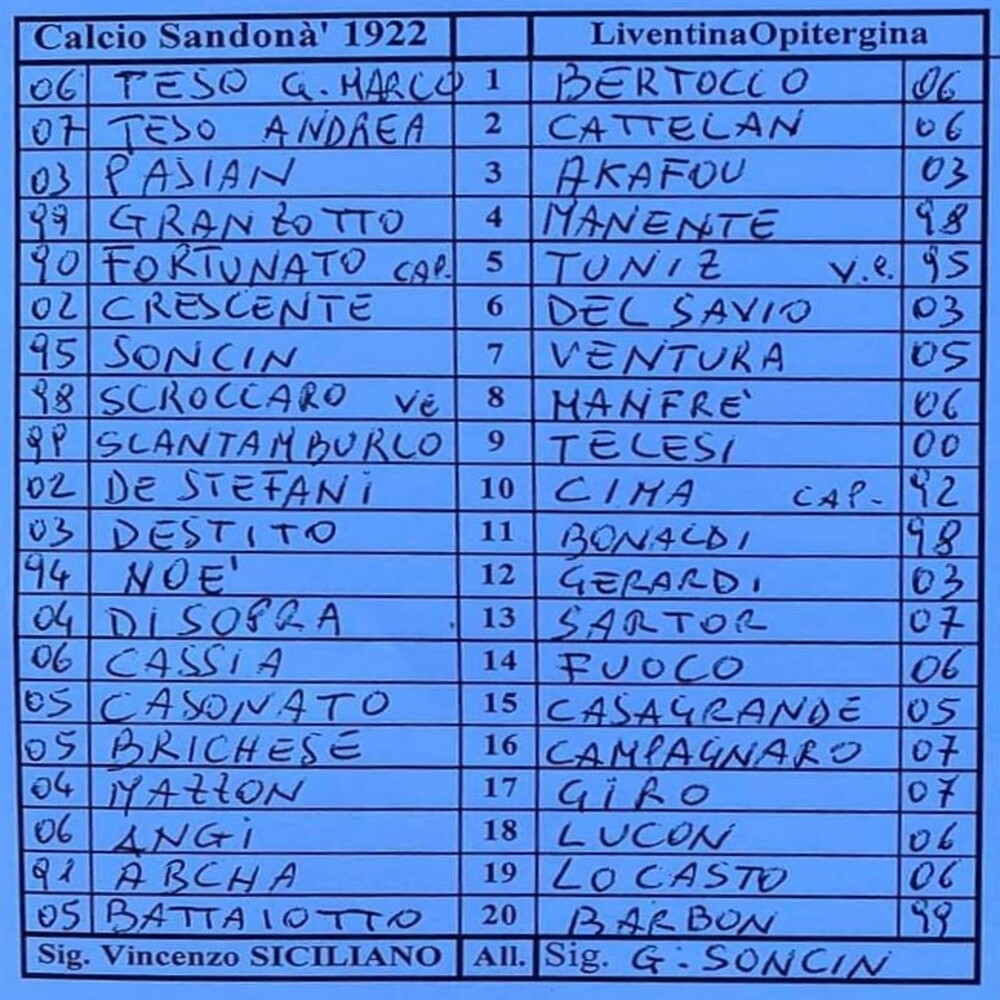 Calcio Sandonà' 1922 LiventinaOpitergina
06 TESO G. MARCO 1 BERTOCCO 06
07 TESO ANDREA 2 CATTELAN 06
03 PASIAN 3 AKAFOU 03
99 GRANZOTTO 4 MANENTE 98
90 FORTUNATO CAP. 5 TUNIZ V.C. 95
02 CRESCENTE 6 DEL SAVIO 03
95 SONCIN 7 VENTURA 05
98 SCROCCARO VC 8 MANFRE' 06
SCANTAMBURLO 9 TELESI 00
02 DE STEFANI 10 CIMA CAP. 92
03 DESTITO 11 BONALDI 98
94 NOE' 12 GERARDI 03
04 DI SOPRA 13 SARTOR 07
06 CASSIA 14 FUOCO 06
05 CASONATO 15 CASAGRANDE 05
05 BRICHESE 16 CAMPAGNARO 07
04 MAZZON 17 GIRO 07
06 ANGI 18 LUCON 06
91 ABCHA 19 LO CASTO 06
05 BATTAIOTTO 20 BARBON 99
Sig. Vincenzo SICILIANO All. Sig. G. SONCIN